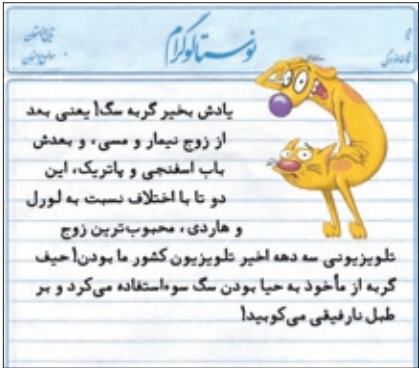 نوستالوگرام
یادش بخیر گربه سگ! یعنی بعد
از زوج نیمار و مسی، و بعدش
باب اسفنجی و پاتریک، این
دو تا با اختلاف نسبت به لورل
و هاردی، محبوب‌ترین زوج
تلویزیونی سه دهه اخیر تلویزیون کشور ما بودن! حیف
گربه از مأخوذ به حیا بودن سگ سوءاستفاده می‌کرد و بر
طبل نارفیقی می‌کوبید!